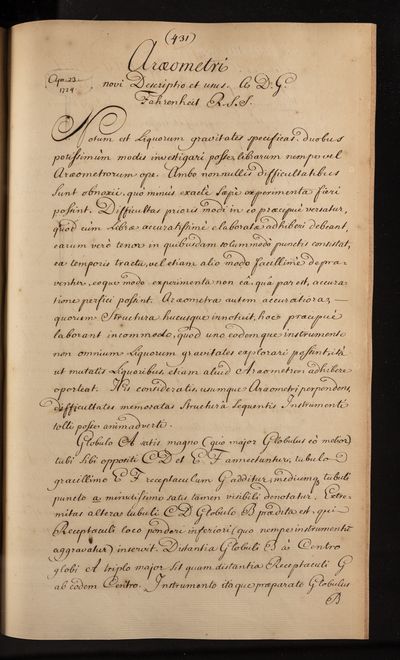 (431)
Aræometri
Apr. 23.
1724
novi Descriptio et usus. Ab D. G.
Fahrenheit R.S.S.
Notum est Liquorum gravitates specificas duobus
potissimùm modis investigari posse, librarum nempe vel
Aræometrorum ope. Ambo nonnullis difficultatibus
sunt obnoxii, quo minùs exactè sæpè experimenta fieri
possint. Difficultas prioris modi in eo præcipuè versatur,
quod cum Libræ accuratissimè elaboratæ adhiberi debeant,
earum verò tenor in quibusdam solummodo punctis consistat,
ea temporis tractu, vel etiam alio modo facillimè depra-
ventur, eoque modo experimenta non eâ, quâ par est, accura-
tione perfici possint. Aræometra autem accuratiora,
quorum Structura hucusque innotuit, hoc præcipuè
laborant incommodo, quod uno eodemque instrumento
non omnium Liquorum gravitates explorari possint; ità
ut mutatis Liquoribus etiam aliud Aræometron adhibere
oporteat. His consideratis, usumque Aræometri perpendens,
difficultates memoratas Structurâ Sequentis Instrumenti
tolli posse animadverti.
Globulo A satis magno (quo major Globulus eò melior)
tubi sibi oppositi C D et E F annectuntur, tubulo
gracillimo E F receptaculum G additur, mediumq tubuli
puncto a minutissimo satis tamen visibili denotatur. Extre-
mitas altera tubuli C D Globulo B prædita est, qui
Receptaculi loco ponderi inferiori (quo nempe instrumentũ
aggravatur) inservit. Distantia Globuli B à Centro
globi A triplo major sit quam distantia Receptaculi G
ab eodem Centro. Instrumento itaque præparato Globulus
B